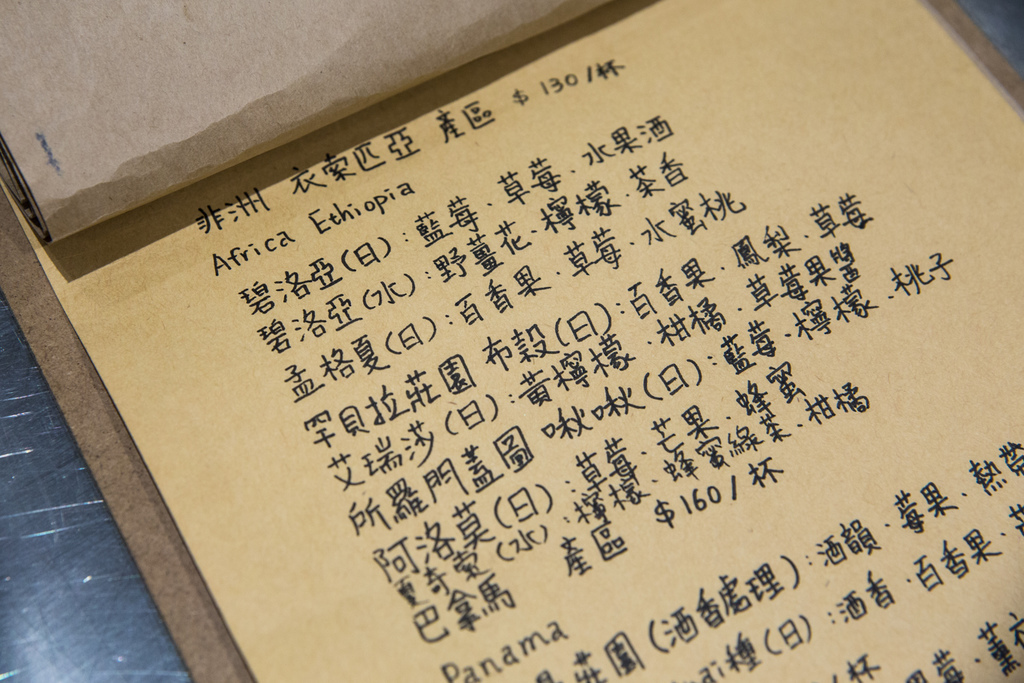 非洲 衣索匹亞 產區 $130/杯
Africa Ethiopia
碧洛亞(日):藍莓、草莓、水果酒
碧洛亞(水):野薑花、檸檬、茶香
孟格夏(日):百香果、草莓、水蜜桃
罕貝拉莊園 布穀(日):百香果、鳳梨、草莓
艾瑞莎(日):黃檸檬、柑橘、草莓果醬
所羅門蓋圖 啾啾(日):藍莓、檸檬、桃子
阿洛莫(日):草莓、芒果、蜂蜜
夏奇索(水):檸檬、蜂蜜綠茶、柑橘
巴拿馬 產區 $160/杯
Panama
莊園(酒香處理):酒韻、莓果、熱帶
種(日):酒香、百香果、
/杯
莓、薰衣